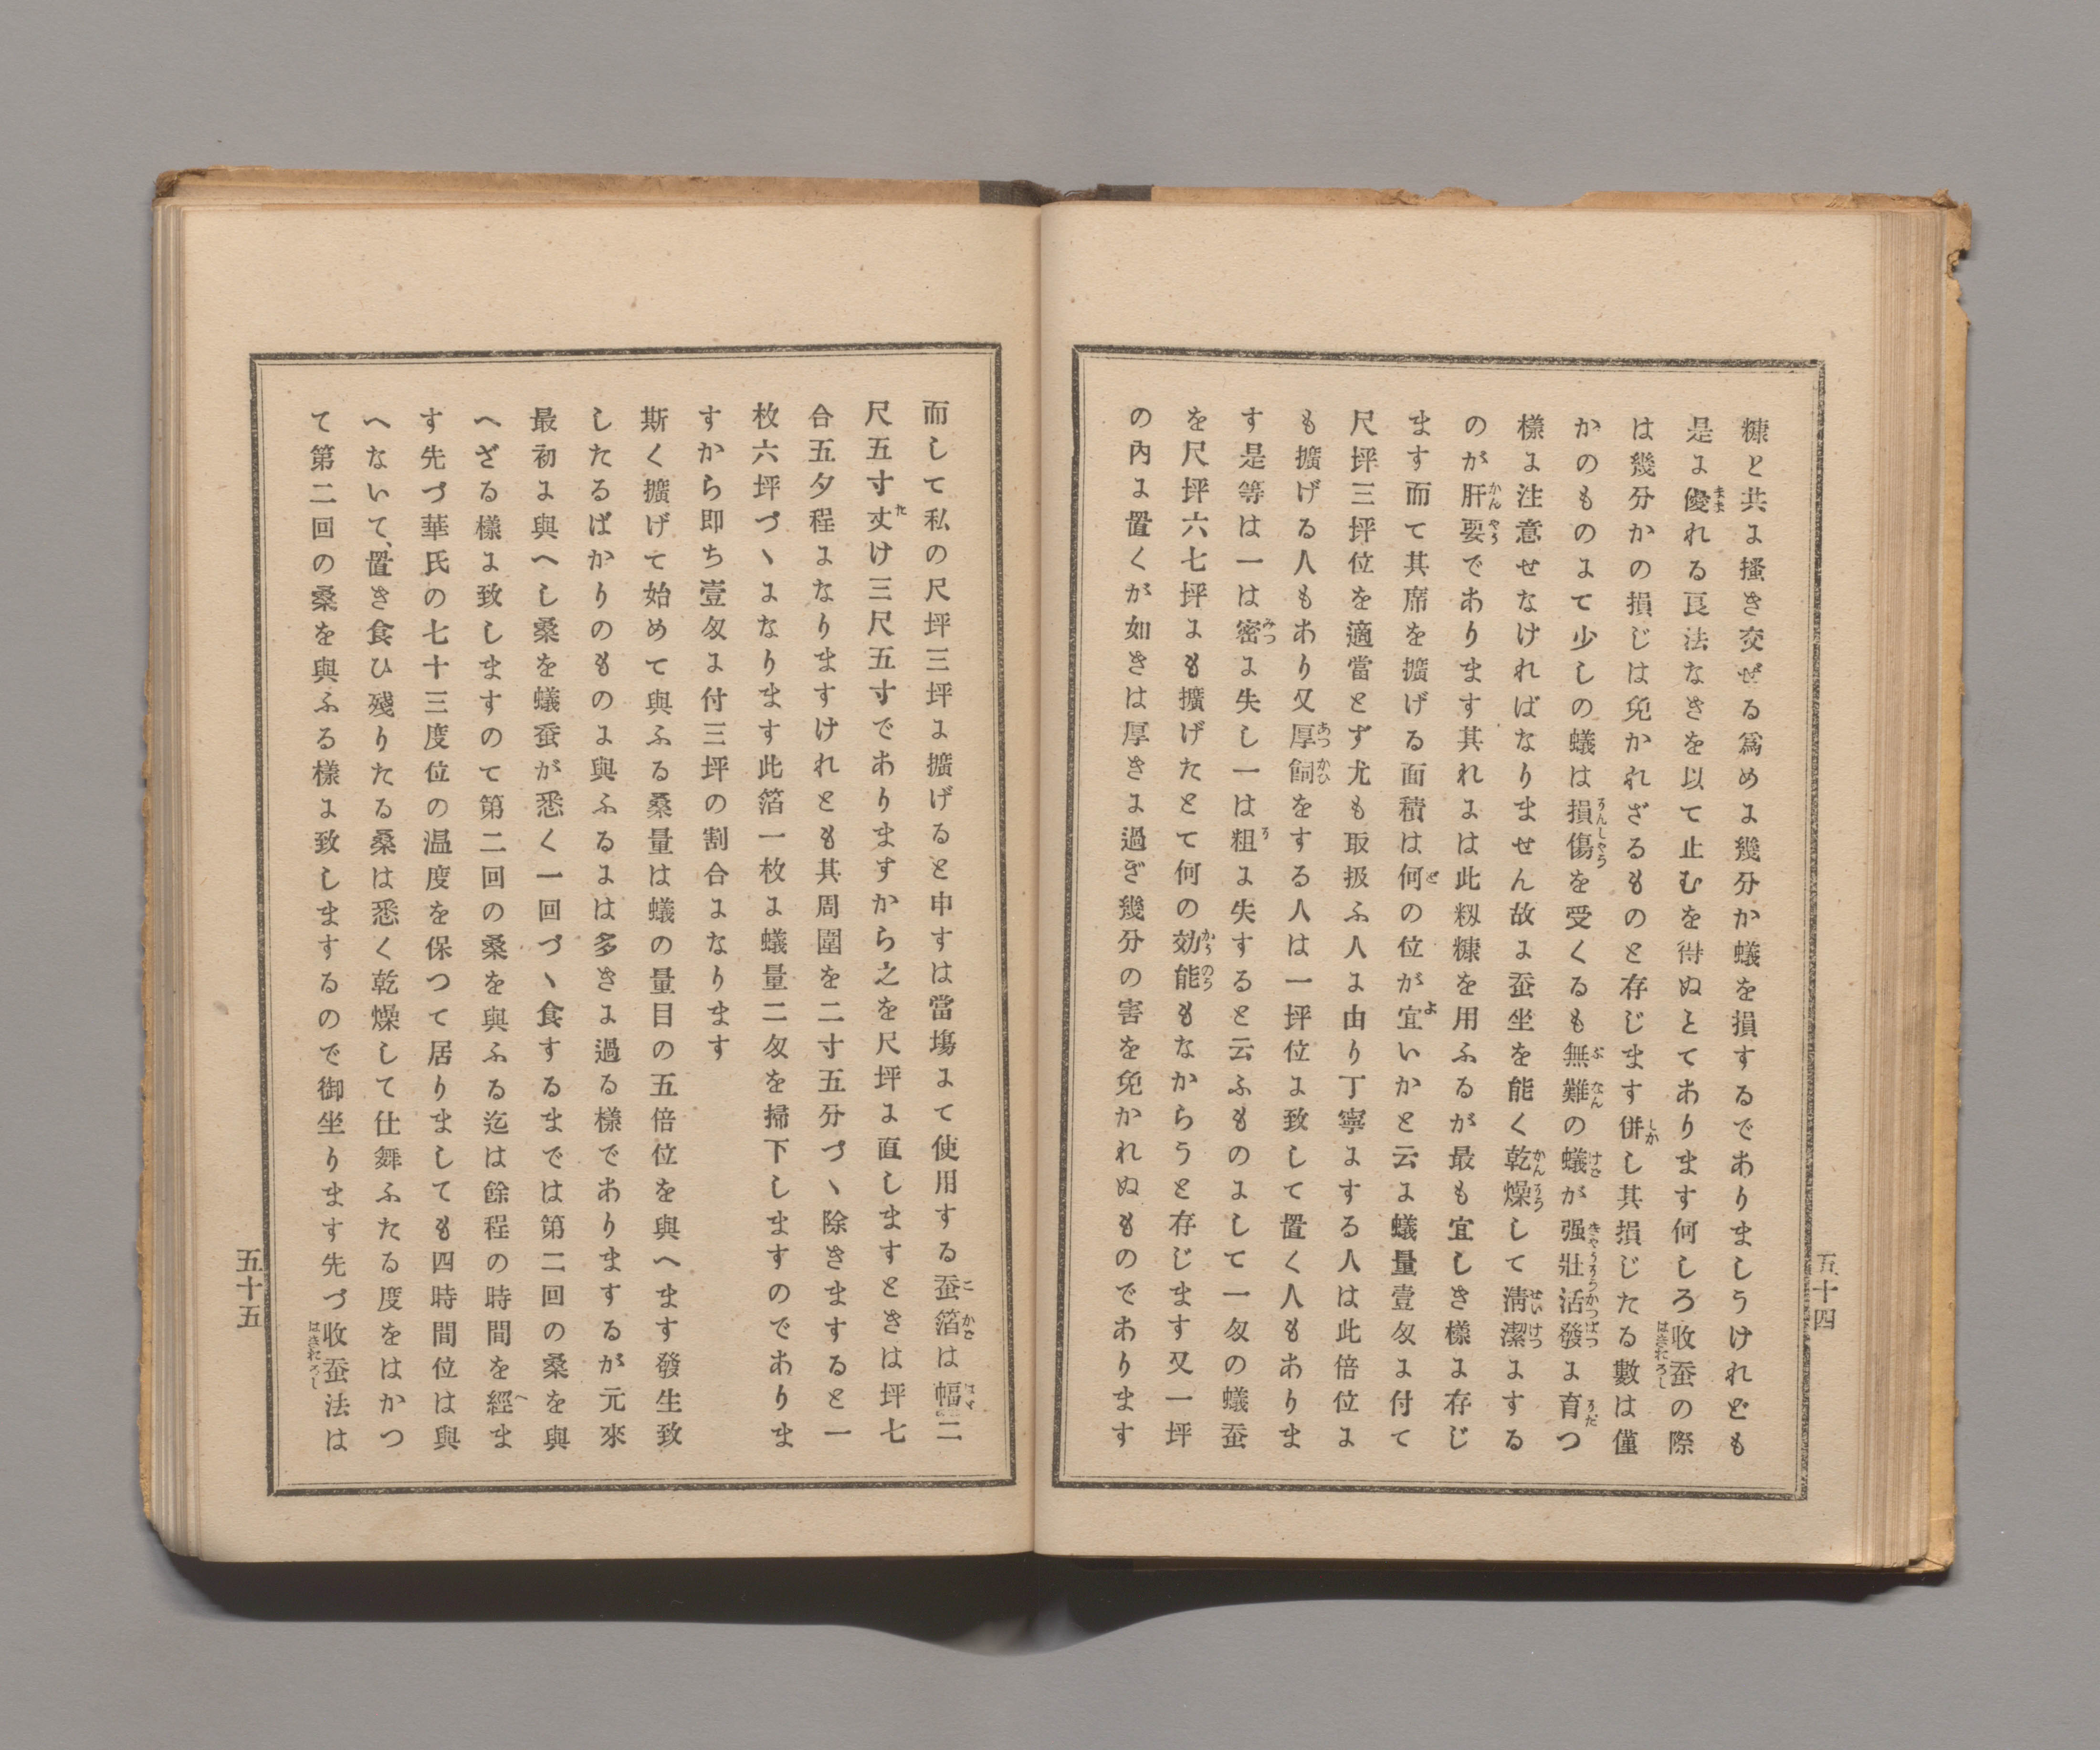 糠と共に搔き交ぜる爲めに幾分か蟻を損するでありましうけれども
是に優れる良法なきを以て止むを得ぬとてあります何しろ收蚕の際
は幾分かの損じは免かれざるものと存じます併し其損じたる數は僅
かのものにて少しの蟻は損傷を受くるも無難の蟻が强壯活發に育つ
樣に注意せなければなりません故に蚕坐を能く乾燥して淸潔にする
のが肝要であります其れには此籾糠を用ふるが最も宜しき樣に存じ
ます而て其席を擴げる面積は何の位が宜いかと云に蟻量壹匁に付て
尺坪三坪位を適當とず尤も取扱ふ人に由り丁寧にする人は此倍位に
も擴げる人もあり又厚飼をする人は一坪位に致して置く人もありま
す是等は一は密に失し一は粗に失すると云ふものにして一匁の蟻蚕
を尺坪六七坪にも擴げたとて何の効能もなからうと存じます又一坪
の內に置くが如きは厚きに過ぎ幾分の害を免かれぬものであります
五十四
而して私の尺坪三坪に擴げると申すは當塲にて使用する蚕箔は幅二
尺五寸丈け三尺五寸でありますから之を尺坪に直しますときは坪七
合五夕程になりますけれとも其周圍を二寸五分づヽ除きますると一
枚六坪づヽになります此箔一枚に蟻量二匁を掃下しますのでありま
すから即ち壹匁に付三坪の割合になります
斯く擴げて始めて與ふる桑量は蟻の量目の五倍位を與へます發生致
したるばかりのものに與ふるには多きに過る樣でありまするが元來
最初に與へし桑を蟻蚕が悉く一回づヽ食するまでは第二回の桑を與
へざる樣に致しますのて第二回の桑を與ふる迄は餘程の時間を經ま
す先づ華氏の七十三度位の温度を保つて居りましても四時間位は與
へないて、置き食ひ殘りたる桑は悉く乾燥して仕舞ふたる度をはかつ
て第二回の桑を與ふる樣に致しまするので御坐ります先づ收蚕法は
五十五